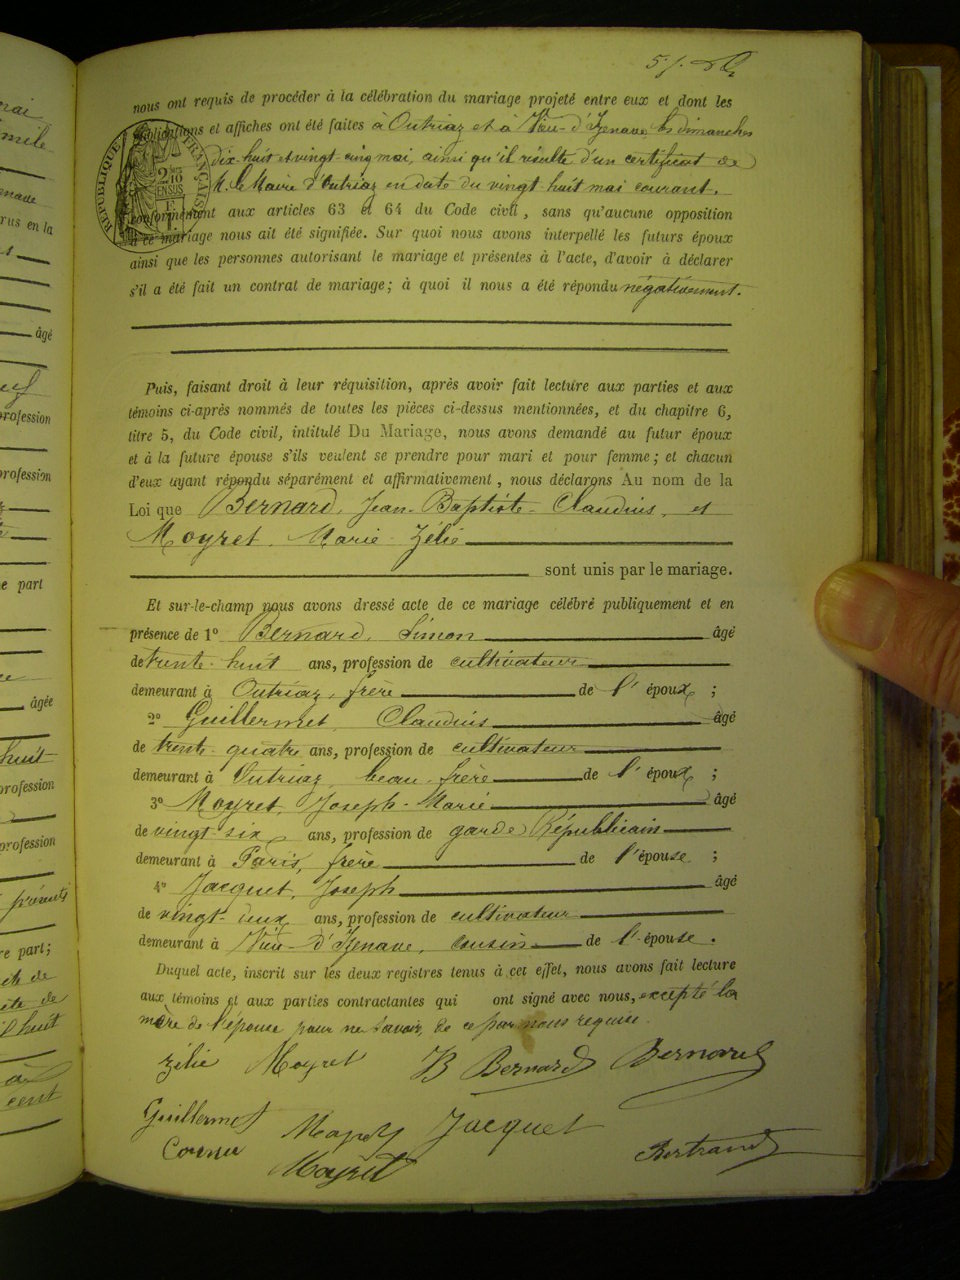 nous ont requis de procéder à la célébration du mariage projeté entre eux et dont les
publications et affiches ont été faites à Outriaz et à Vieu-d'Izenave les dimanches
dix-huit et vingt-cinq mai, ainsi qu'il résulte d'un certificat de
M. le Maire d'Outriaz en date du vingt-huit mai courant.
conformément aux articles 63 et 64 du Code civil, sans qu'aucune opposition
à ce mariage nous ait été signifiée. Sur quoi nous avons interpellé les futurs époux
ainsi que les personnes autorisant le mariage et présentes à l'acte, d'avoir à déclarer
s'il a été fait un contrat de mariage; à quoi il nous a été répondu négativement.
RÉPUBLIQUE FRANÇAISE
2/10 EN SUS
Puis, faisant droit à leur réquisition, après avoir fait lecture aux parties et aux
témoins ci-après nommés de toutes les pièces ci-dessus mentionnées, et du chapitre 6,
titre 5, du Code civil, intitulé Du Mariage, nous avons demandé au futur époux
et à la future épouse s'ils veulent se prendre pour mari et pour femme; et chacun
d'eux ayant répondu séparément et affirmativement, nous déclarons Au nom de la
Loi que Bernard, Jean-Baptiste-Claudius, et
Moyret, Marie-Zélie
sont unis par le mariage.
Et sur-le-champ nous avons dressé acte de ce mariage célébré publiquement et en
présence de 1° Bernard, Simon âgé
de trente-huit ans, profession de cultivateur
demeurant à Outriaz, frère de l'époux ;
2° Guillermet, Claudius âgé
de trente-quatre ans, profession de cultivateur
demeurant à Outriaz beau-frère de l'époux ;
3° Moyret, Joseph-Marie âgé
de vingt-six ans, profession de garde Républicain
demeurant à Paris, frère de l'épouse ;
4° Jacquet, Joseph âgé
de vingt-deux ans, profession de cultivateur
demeurant à Vieu-d'Izenave, cousin de l'épouse.
Duquel acte, inscrit sur les deux registres tenus à cet effet, nous avons fait lecture
aux témoins et aux parties contractantes qui ont signé avec nous, excepté la
mère de l'épouse pour ne savoir, de ce par nous requise.
Zélie Moyret B Bernard Bernard
Guillermet Moyret Jacquet
Moyret Bertrand